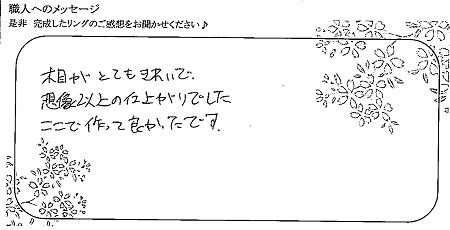 職人へのメッセージ
是非 完成したリングのご感想をお聞かせください♪
木目が とても きれいで、
想像以上の仕上がりでした
ここで 作って 良かったです。